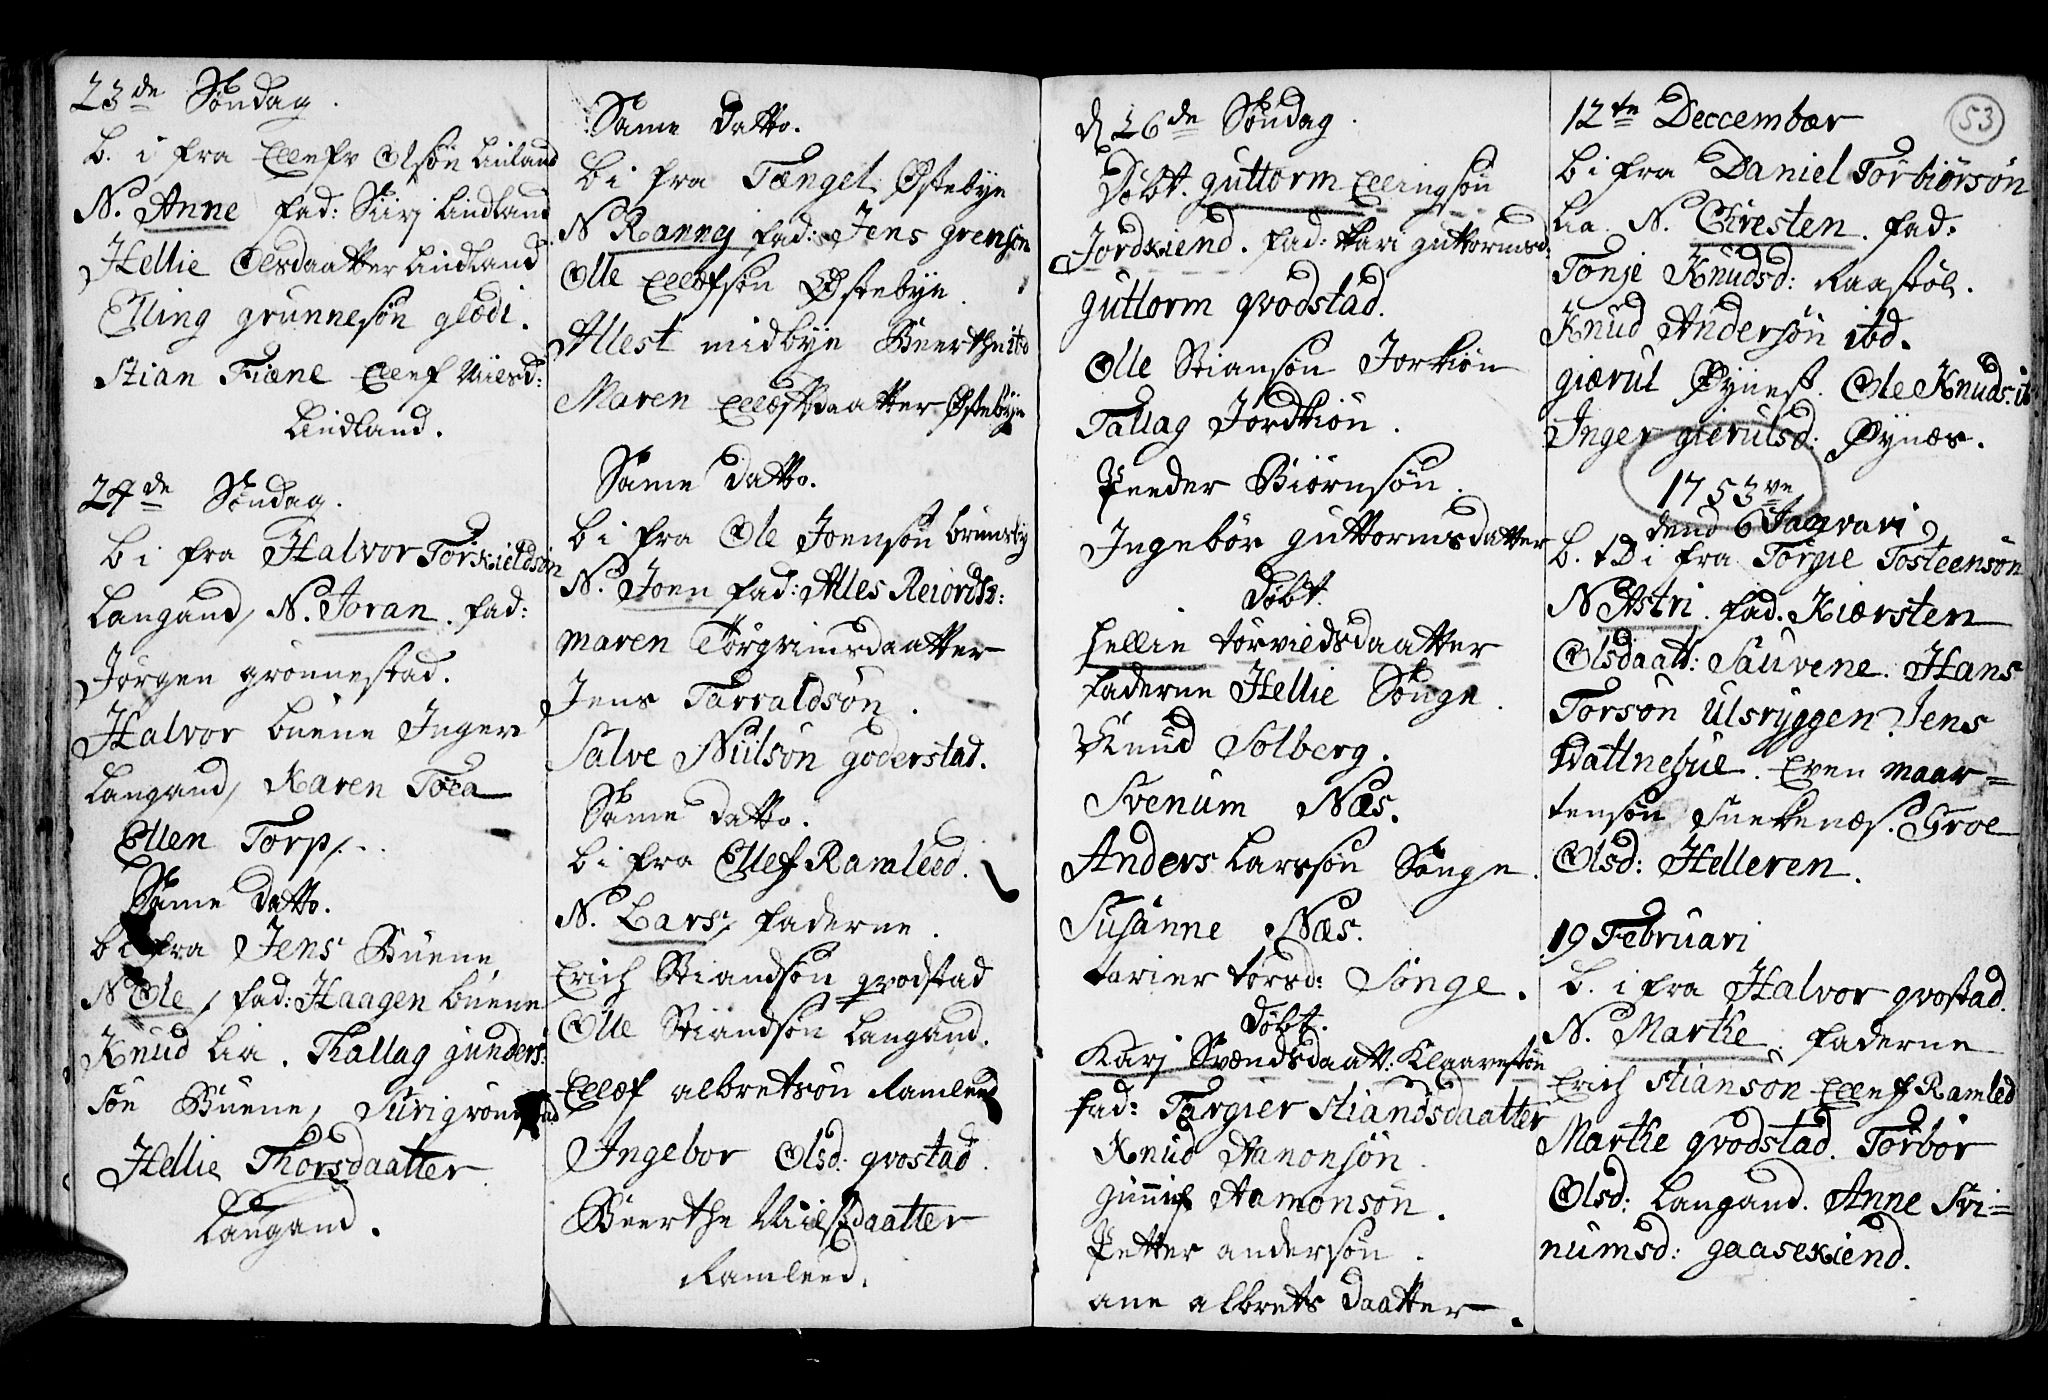 23de Söndag.
b. i fra Ellefs Olsön Linland
N. Anne fad: Siirj Lindland
Hellie Olsdaatter Lindland
Elling grunnesön glödi.
Stian Fiane Ellef Niilsd:
Lindland.
24de Söndag.
b i fra Halvor Torkieldsön
Langand, N. Joran. fad:
Jörgen grönnestad.
Halvor buene Inger
Langand, Karen Toea
Ellen Torp.
Same Datto.
b i fra Jens Buene
N Ole, fad: Haagen buene
Knud Lia. Thallag gunders:
sön Buene, Siri grönestad
Hellie Thorsdaatter
Langand.
Same Datto.
bi fra Tængel Østebye
N Rannej fad: Jens grensön
Olle Ellefsön Østebye.
Allest midbye Beerthe ibd
Maren Ellefsdaatter Østebye
Same Datto.
b i fra Ole Joensön brunsby
N. Joen fad: Alles Reiords:
maren Torgrimsdaatter
Jens Tarraldsön.
Salve Niilsön goderstad.
Same Datto.
b i fra Ellef Ramleed.
N. Lars, faderne.
Erich Stiandsön qvodstad
Olle Stiandsön Langand.
Ellef albretsön Ramleed
Ingebor Olsd: qvostad.
Beerthe Niilsdaatter
Ramleed.
d 26de Söndag.
Döbt. guttorm Ellingsön
Jordkiend. fad: kari guttormsd:
guttorm qvodstad.
Olle Stiansön Jorkiön
Tallag Jordkiön.
Peeder Biörnsön.
Ingebör guttormsdatter
Döbt.
Hellie torvieldsdaatter
faderne Hellie Songe.
Knud Solberg.
Svenum Næs.
Anders Larssön Songe.
Susanne Næs.
tarier torsd: Songe.
Döbt.
Karj Svendsdaatt: Klaarestön
fad: Targier Stiandsdaatter
Knud Aamonsön.
gunnif Aamonsön.
Petter andersön.
ane albrets daatter.
53
12te Deccembær
b i fra Daniel Torbiörsön
Lia N. Chresten. fad:
Tonje Knudsd: Raastöl.
Knud Andersön ibd.
giærul Øynes. Ole Knuds. ib
Inger gierulsd: Øynæs.
1753ve
dend 6 Janvari
b. D i fra Torgie Tosteensön
N Astri. fad. Kiærsten
Olsdaatt: Sauvene. Hans
Torsön Ulsryggen. Jens
Vattnebue. Even Maar=
tensön Snekenæs. Groe
Olsd: Helleren.
19 Februari
b. i fra Halvor qvostad.
N. Marthe. faderne
Erich Stiansön Ellef Ramled
Marthe qvodstad. Torbor
Olsd: Langand. Anne Svi=
numsd: gaasekiend.